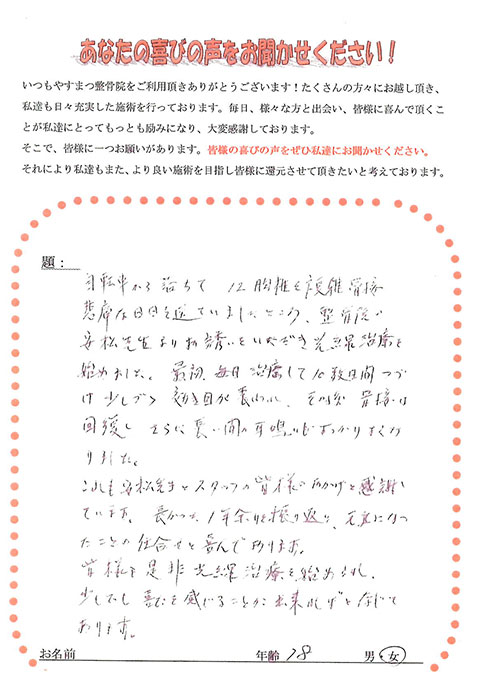 あなたの喜びの声をお聞かせください！
いつもやすまつ整骨院をご利用頂きありがとうございます！たくさんの方々にお越し頂き、
私達も日々充実した施術を行っております。毎日、様々な方と出会い、皆様に喜んで頂くこ
とが私達にとってもっとも励みになり、大変感謝しております。
そこで、皆様に一つお願いがあります。皆様の喜びの声をぜひ私達にお聞かせください。
それにより私達もまた、より良い施術を目指し皆様に還元させて頂きたいと考えております。
題：
自転車から落ちて 12胸椎を複雑骨折
悲痛な日日を送っていましたところ、整骨院の
安松先生よりお誘いをいただき光線治療を
始めました。最初、毎日治療して10数日間つづ
け少しづつ効き目が表われ、その後 骨折は
回復し さらに長い間の耳鳴りもすっかりなくな
りました。
これも安松先生とスタッフの皆様のおかげと感謝し
ています。長かった1年余りを振り返り、元気になっ
たことの仕合せを喜んで居ります。
皆様も是非光線治療を始められ、
少しでも喜びを感じることが出来ればと念じて
おります。
お名前 年齢 78 男・女